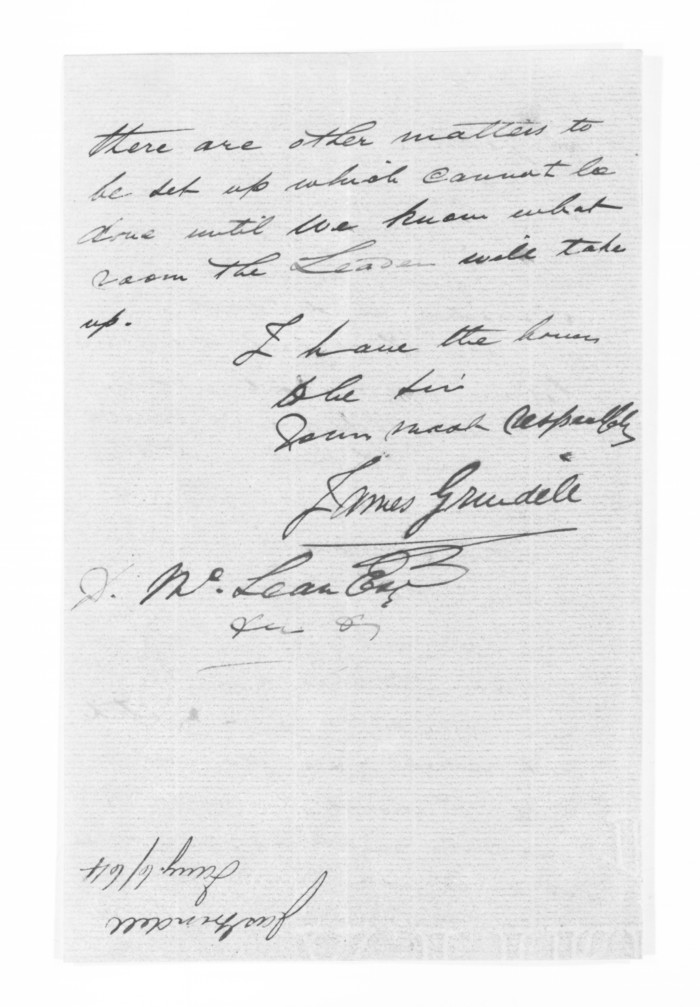 there are other matters to
be set up which cannot be
done until we know what
room the Leader will take
up.
I have the honor
to be Sir
Your most respectfully
James Grindell
D. McLean Esq
&c &c
Jas Grindell
6/64